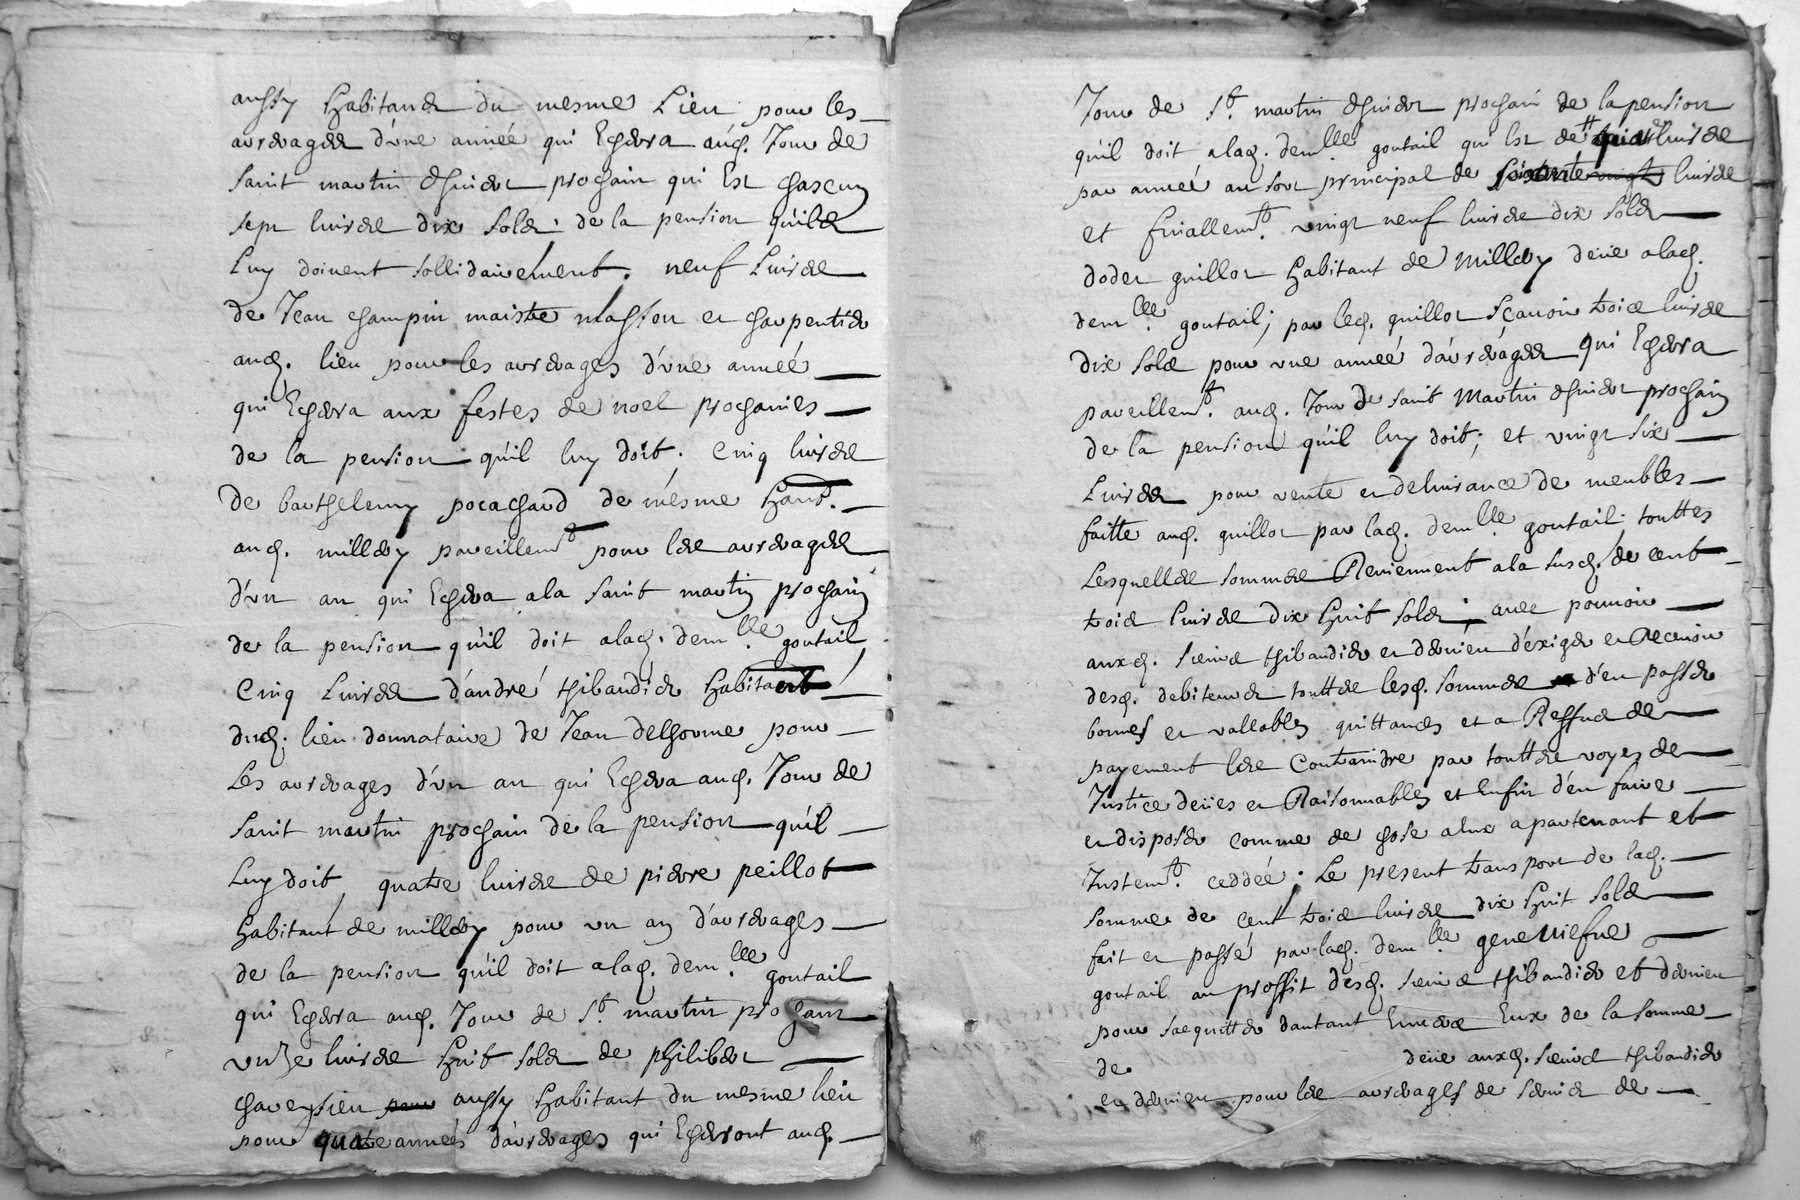 aussy habitands du mesme Lieu pour les
arrerages d'vne année qui Echera aud. Jour de
saint martin d'hiver prochain qui Est chascun
sept livres dix sols de la pension qu'ils
Luy doivent sollidairement. neuf Livres
de Jean champin maistre masson et charpentier
aud. lieu pour les arrerages d'vne année
qui Echera aux festes de noel prochaines
de la pension qu'il luy doit. Cinq livres
de barthelemy pocachard de mesme habt.
aud. millery pareillemt pour les arrerages
d'vn an qui Echera a la saint martin prochain
de la pension qu'il doit a lad. demlle goutail
Cinq Livres d'andré thibaudier habitant
dud. lieu donnataire de Jean delhorme pour
Les arrerages d'vn an qui Echera aud. Jour de
saint martin prochain de la pension qu'il
Luy doit quatre livres de pierre peillot
habitant de millery pour vn an d'arrerages
de la pension qu'il doit a lad. demlle goutail
qui Echera aud. Jour de St martin prochain
vnze livres huit sols de philiber
chaveysieu aussy habitant du mesme lieu
pour quatre années d'arrerages qui Echeront aud.
Jour de St martin d'hiver prochain de la pension
qu'il doit a lad. demlle goutail qui Est de livres
par année au sort principal de livres
et finallemt vingt neuf livres dix sols
guillot habitant de millery deüe a lad.
demlle goutail; par led. guillot sçavoir trois livres
dix sols pour vne année d'arrerages qui Echera
pareillemt aud. Jour de saint Martin d'hiver prochain
de la pension qu'il luy doit; et vingt six
Livres pour vente et delivrance de meubles
faitte aud. guillot par lad. demlle goutail touttes
Lesquelles sommes Reviennent a la susd. de cent
trois livres dix huit sols; avec pouvoir
auxd. sieurs thibaudier et dervieu d'exiger et Recevoir
desd. debiteurs touttes lesd. sommes d'en passer
bonnes et vallables quittances et a Reffus de
payement les Contraindre par touttes voyes de
Justice deües et Raisonnables et Enfin d'en faire
et disposer comme de chose a Eux apartenant et
Justemt ceddée. Le present transport de lad.
somme de cent trois livres dix huit sols
fait et passé par lad. demlle geneviefve
goutail au proffit desd. sieurs thibaudier et dervieu
pour s'acquitter d'autant Envers Eux de la somme
de deüe auxd. sieurs thibaudier
et dervieu pour les arrerages de servis de